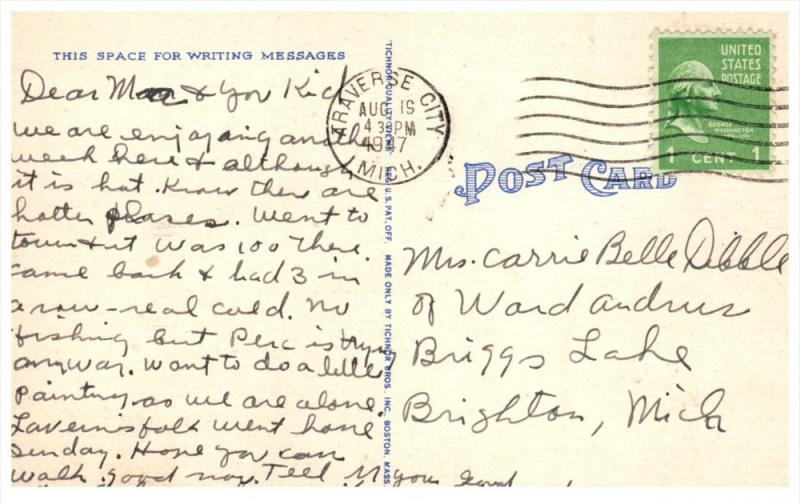 THIS SPACE FOR WRITING MESSAGES
Dear Mae & you Kid
We are enjoying another
week here & although
it is hot. Know there are
hotter places. Went to
town & it was 100 there.
Came back & had 3 in
a row - real cold. No
fishing but Perc is trying
anyway. Want to do a little
painting as we are alone.
Lavern's folk went home
Sunday. Hope you can
walk good now. Tell
you
TICHNOR QUALITY VIEWS REG. U.S. PAT. OFF. MADE ONLY BY TICHNOR BROS. INC., BOSTON, MASS.
TRAVERSE CITY
AUG 19
4 30 PM
1947
MICH.
UNITED
STATES
POSTAGE
GEORGE
WASHINGTON
1 CENT 1
POST CARD
Mrs. Carrie Belle Dibble
% Ward Andrus
Briggs Lake
Brighton, Mich